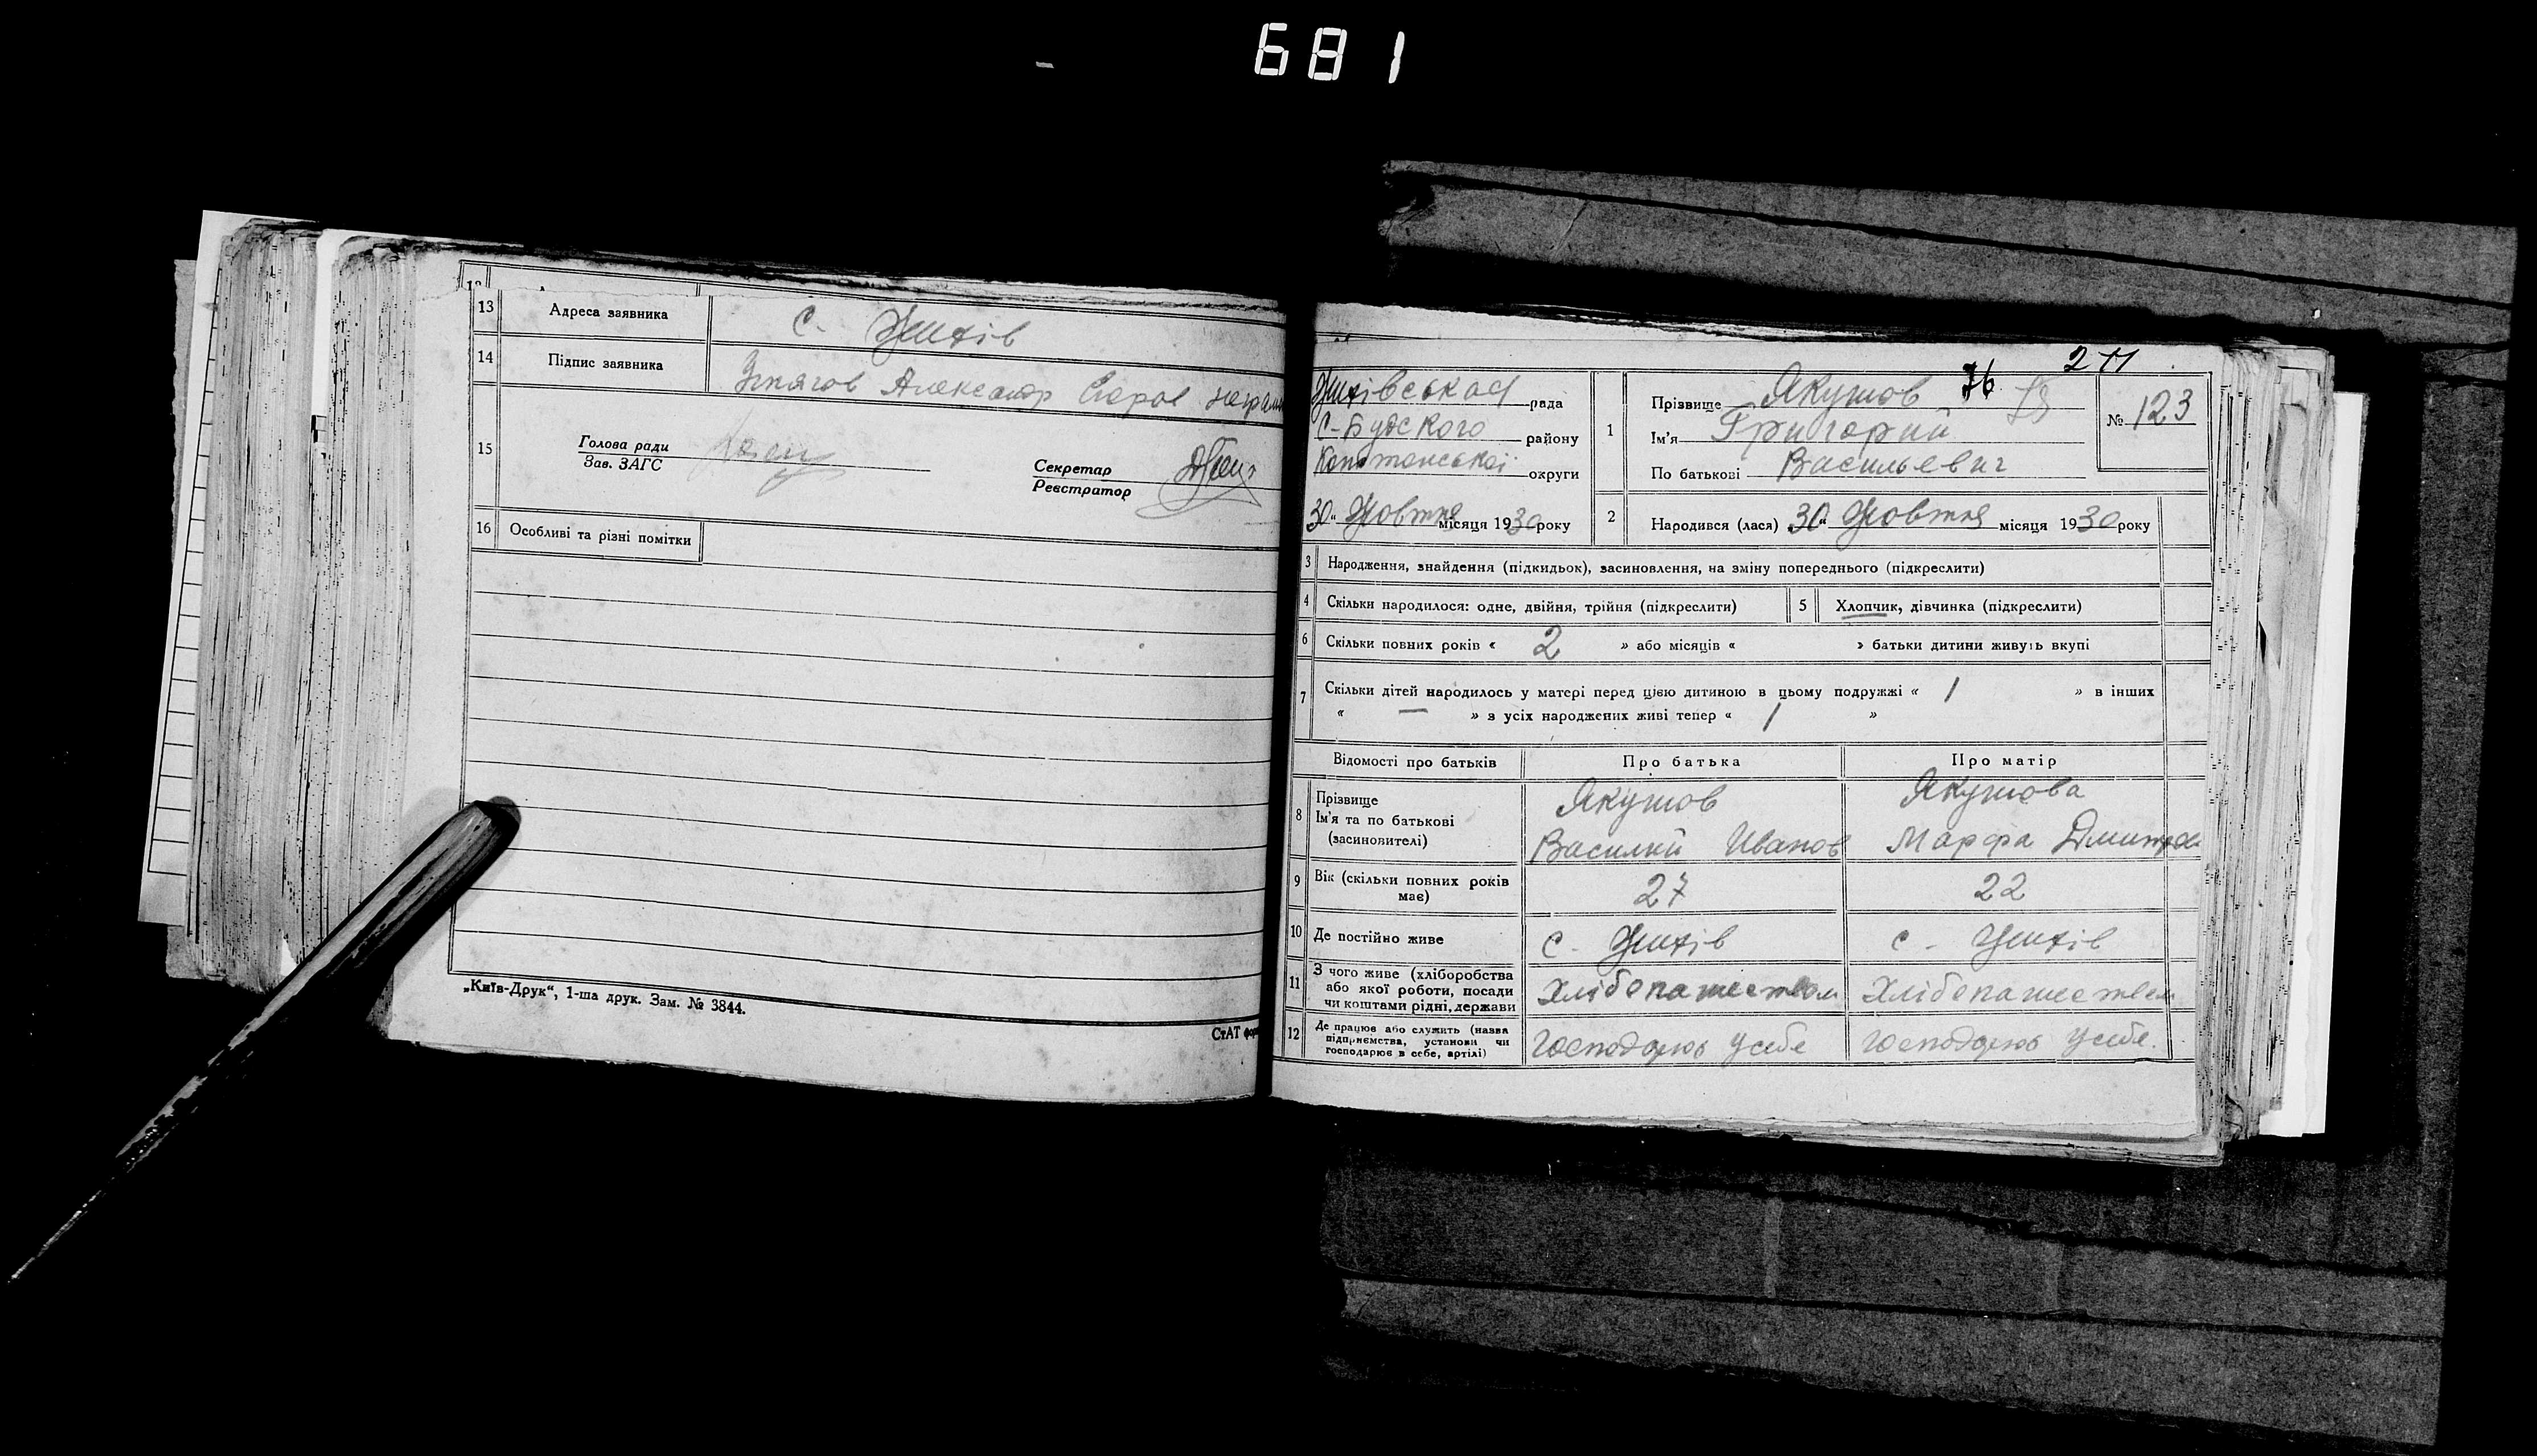 681
13 Адреса заявника с. Жихів
14 Підпис заявника Александр
15 Голова ради
Зав. ЗАГС
Секретар
Реєстратор
16 Особливі та різні помітки
„Київ-Друк“, 1-ша друк. Зам. № 3844.
СтАТ
211
76
Жихівськая рада
С-Будского району
округи
30 „ Жовтня місяця 1930 року
1 Прізвище Якушов
Ім'я Григорий
По батькові Васильевич
№ 123
2 Народився (лася) „30“ Жовтня місяця 1930 року
3 Народження, знайдення (підкидьок), засиновлення, на зміну попереднього (підкреслити)
4 Скільки народилося: одне, двійня, трійня (підкреслити)
5 Хлопчик, дівчинка (підкреслити)
6 Скільки повних років « 2 » або місяців « » батьки дитини живуть вкупі
7 Скільки дітей народилось у матері перед цією дитиною в цьому подружжі « 1 » в інших
« — » з усіх народжених живі тепер « 1 »
Відомості про батьків Про батька Про матір
8 Прізвище
Ім'я та по батькові
(засиновителі)
Якушов
Василий Иванов
Якушова
Марфа
9 Вік (скільки повних років має) 27 22
10 Де постійно живе с. Жихів с. Жихів
11 З чого живе (хліборобства
або якої роботи, посади
чи коштами рідні, держави
Хлібопашеством Хлібопашеством
12 Де працює або служить (назва
підприємства, установи чи
господарює в себе, артілі)
Господарює у себе Господарює у себе.